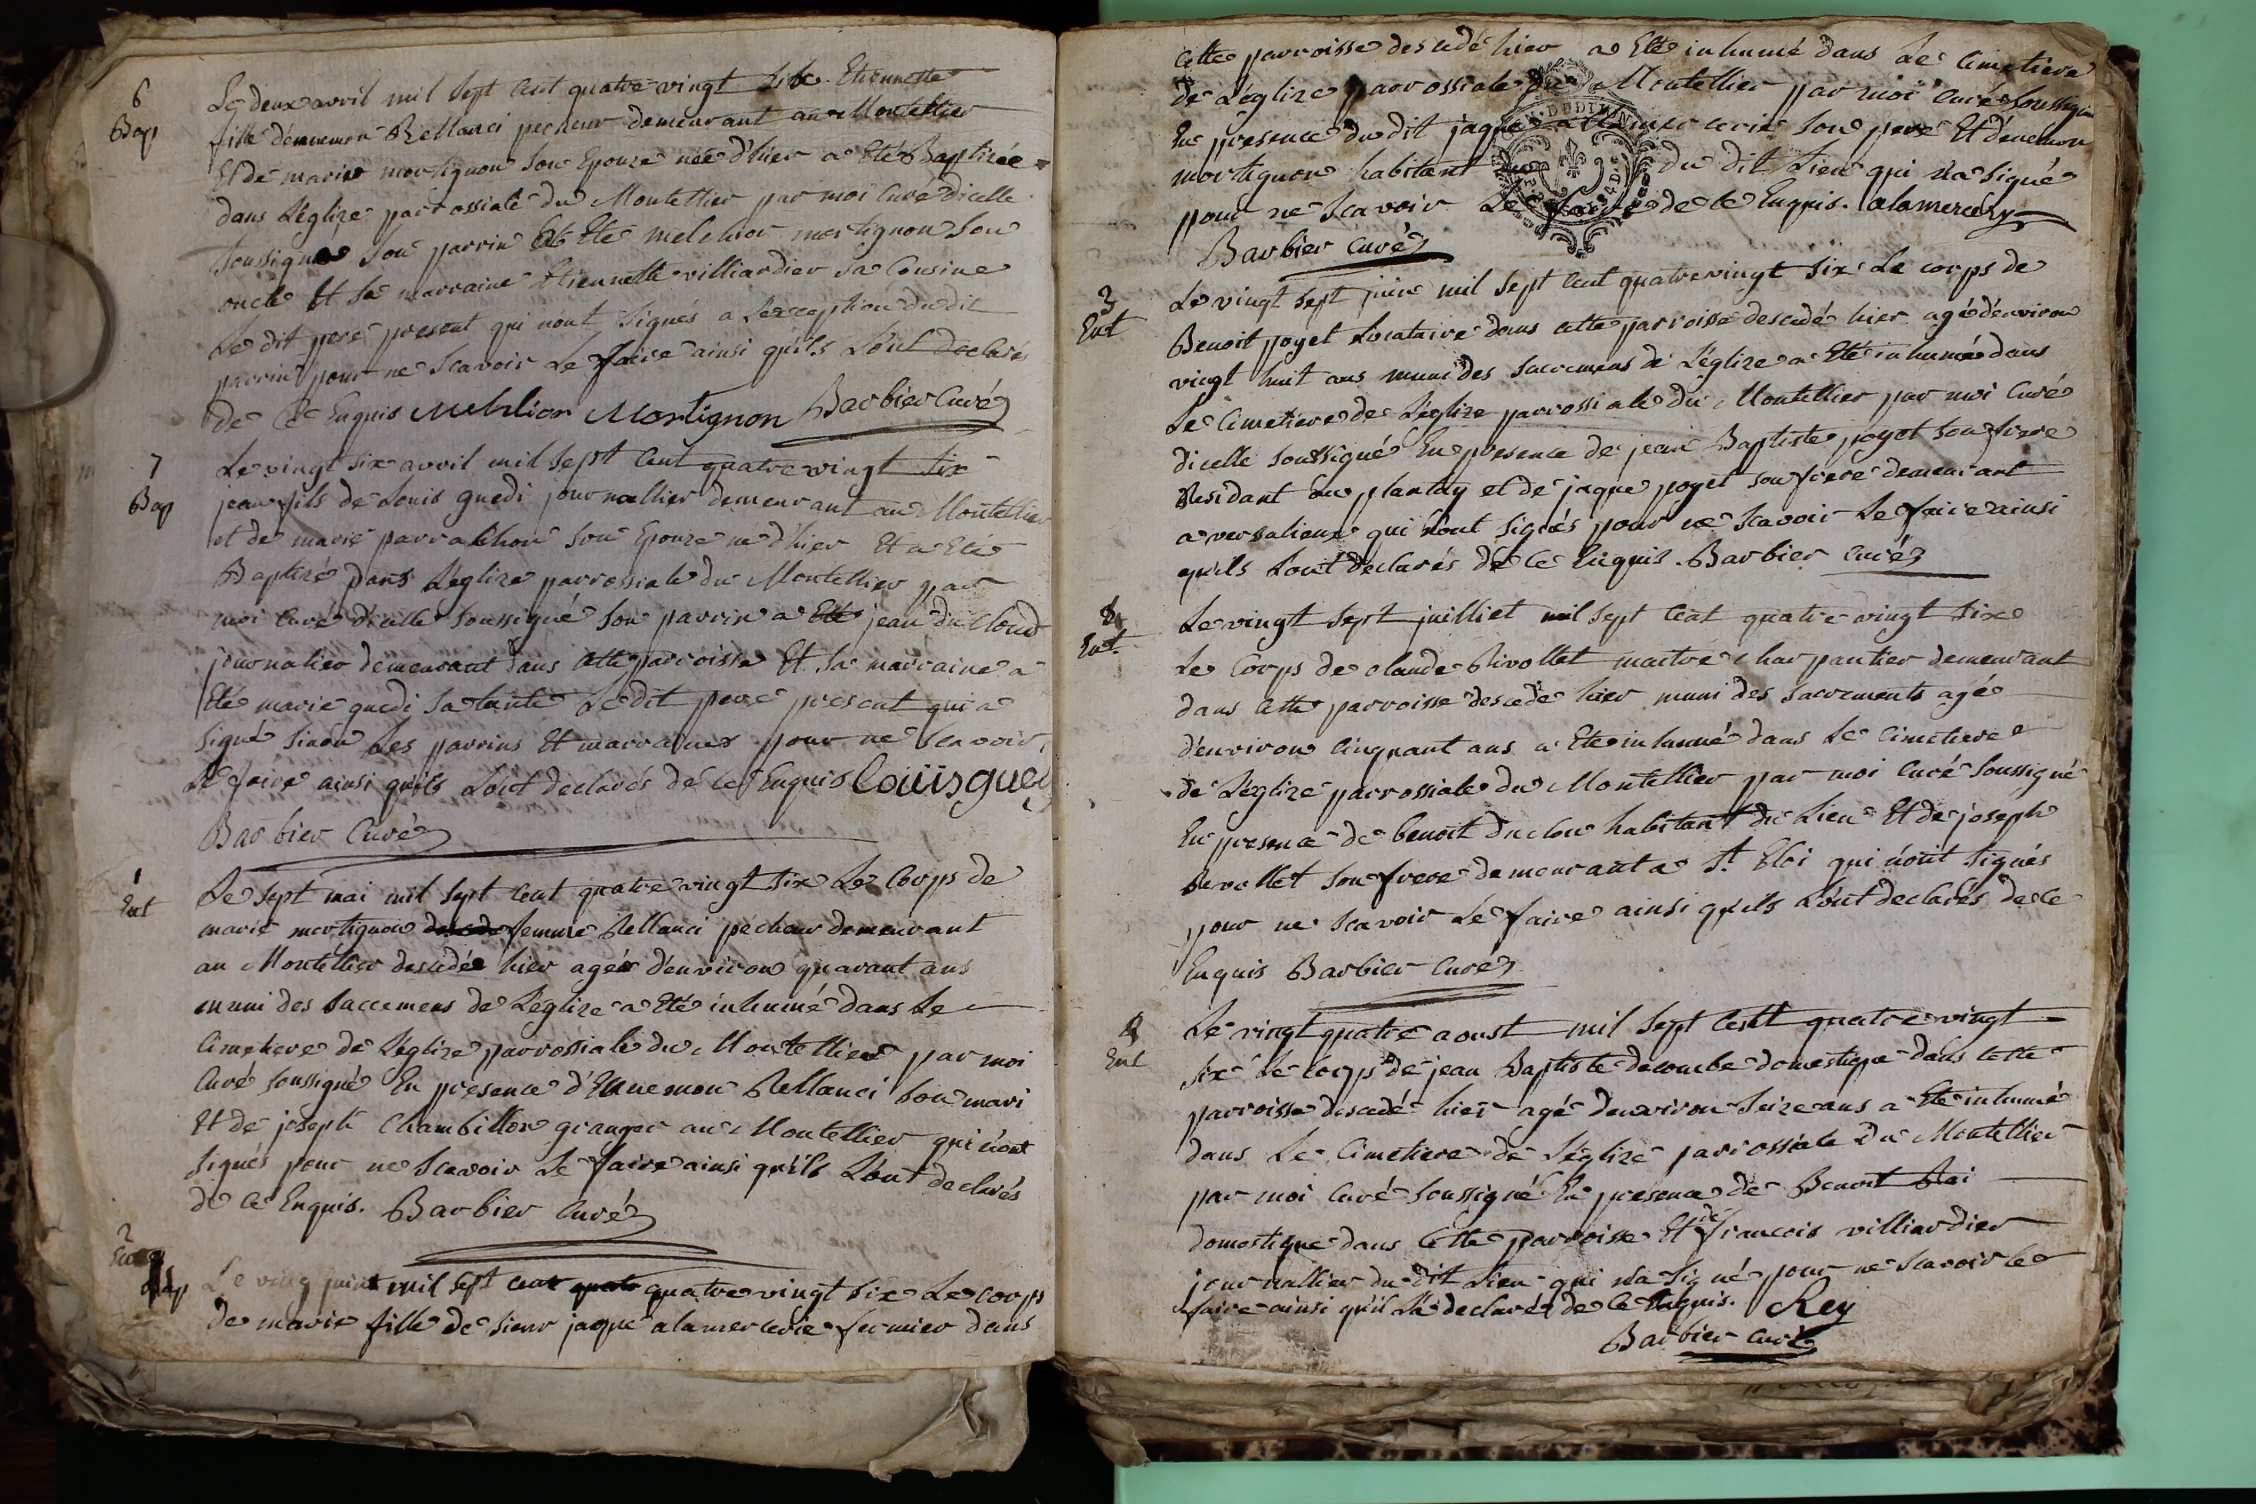 6
Bap
Le deux avril mil sept cent quatre vingt six Etiennette
fille d'ennemon Rellanci pecheur demeurant au Montellier
Et de marie mortignon son Epouze née d'hier a Eté Baptizée
dans L'eglize parrossiale du Montellier par moi Curé d'icelle
soussigné son parrin a Eté melchior mortignon son
oncle Et sa marraine Etiennette villiardier sa Cousine
Le dit pere present qui nont signés a L'exception du dit
parrin pour ne scavoir Le faire ainsi qu'ils L'ont declarés
de Ce Enquis Mehlior Mortignon Barbier Curé
7
Bap
Le vingt six avril mil sept Cent quatre vingt six
jean fils de Louis guedi journallier demeurant au Montellier
et de marie parrachon son Epouze né d'hier Et a Eté
Baptizé dans L'eglize parrossiale du Montellier par
moi Curé d'icelle soussigné son parrin a Eté jean duCloud
journalier demeurant dans Cette parroisse Et sa marraine a
Eté marie guedi sa tante Le dit pere present qui a
signé sinon Les parrins Et marraines pour ne scavoir
Le faire ainsi qu'ils L'ont declarés de Ce Enquis Loüis guey
Barbier Curé
1
Ent
Le sept mai mil sept Cent quatre vingt six Le Corps de
marie mortignon femme Rellanci pecheur demeurant
au Montellier descedée hier agée d'environ quarant ans
muni des saccemens de L'eglize a Eté inhumé dans Le
Cimetiere de L'eglize parrossiale du Montellier par moi
Curé soussigné En presence d'Ennemon Rellanci son mari
Et de joseph Chambillon granger au Montellier qui n'ont
signés pour ne scavoir Le faire ainsi qu'ils L'ont declarés
de Ce Enquis. Barbier Curé
2
Le ving juin mil sept cent quatre vingt six Le corps
de marie fille de sieur jaque alamercerie fermier dans
cette parroisse descedé hier a Eté inhumé dans Le Cimetiere
de L'eglize parrossiale du Montellier par moi Curé soussigné
En presence du dit jaque alamercerie son pere Et d'enemon
mortignon habitant du dit Lieu qui n'a signé
pour ne scavoir Le faire de Ce Enquis. alamercery
Barbier Curé
3
Ent
Le vingt sept juin mil sept Cent quatre vingt six Le corps de
Benoit poyet Locataire dans cette parroisse descedé hier agé d'environ
vingt huit ans muni des sacremens de L'eglize a Eté inhumé dans
Le Cimetiere de L'eglize parrossiale du Montellier par moi Curé
dicelle soussigné En presence de jean Baptiste poyet son frere
Residant au plantay et de jaque poyet son frere demeurant
a versalieux qui n'ont signés pour ne scavoir Le faire ainsi
qu'ils L'ont declarés de Ce Enquis. Barbier Curé
Ent
Le vingt sept juilliet mil sept Cent quatre vingt six
Le Corps de claude Rivollet maitre charpantier demeurant
dans Cette parroisse descedé hier muni des sacrements agé
d'environ Cinquant ans a Eté inhumé dans Le Cimetiere
de L'eglize parrossiale du Montellier par moi Curé soussigné
En presence de benoit duclou habitant du Lieu Et de joseph
Revollet son frere demeurant a St. Eloi qui n'ont signés
pour ne scavoir Le faire ainsi qu'ils L'ont declarés de Ce
Enquis Barbier Curé
Ent
Le vingt quatre aoust mil sept Cent quatre vingt
six Le Corps de jean Baptiste decombe domestique dans cette
parroisse descedé hier agé d'environ seize ans a Eté inhumé
dans Le Cimetiere de L'eglize parrossiale du Montellier
par moi Curé soussigné En presence de Benoit Rei
domestique dans Cette parroisse Et de francois villiardier
journallier du dit Lieu qui n'a signé pour ne scavoir Le
faire ainsi qu'il L'a declaré de Ce Enquis. Rey
Barbier Curé